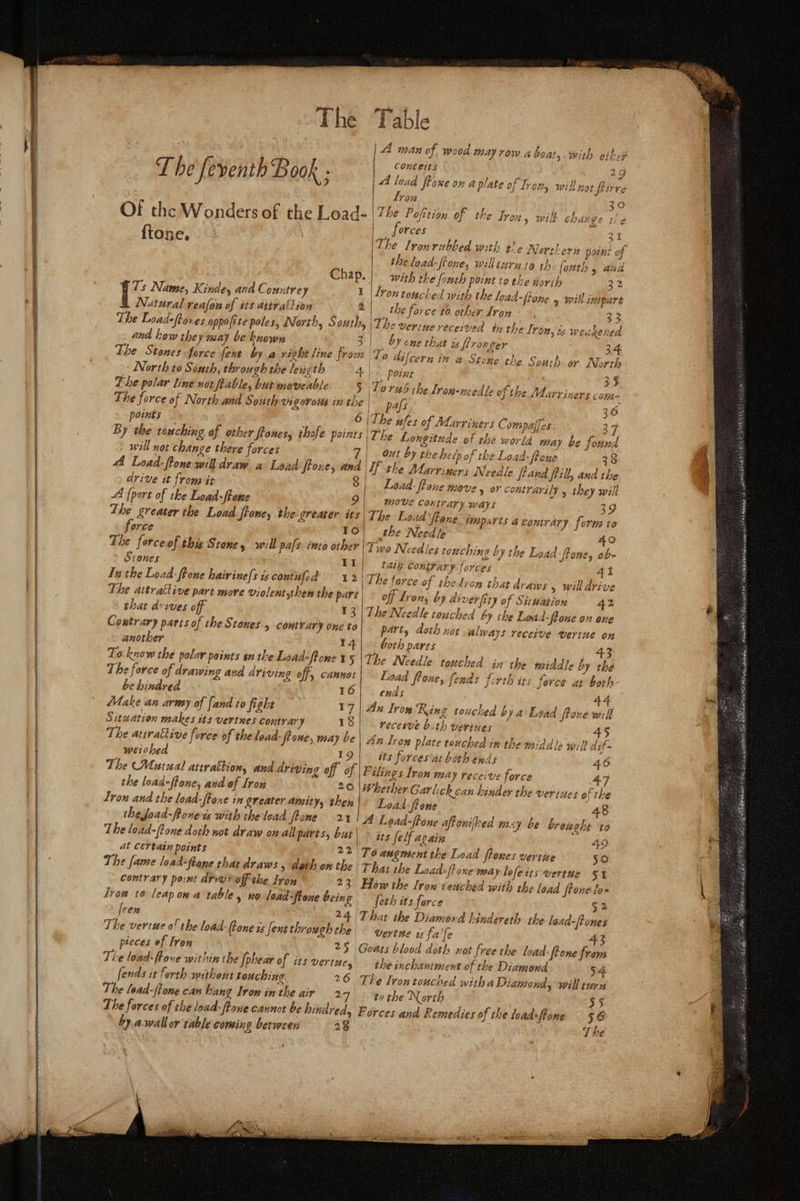 The Table
The seventh Book;
Of the Wonders of the Load-
stone.
Chap.
ITs Name, Kinde, and Countrey 1
Natural reason of its attraction 2
The Load-stones opposite poles, North, South,
and how they may be known 3
The Stones force sent by a right line from
North to South, through the length 4
The polar line not stable, but moveable 5
The force of North and South vigorous in the
points 6
By the touching of other stones, those points
will not change there forces 7
A Load-stone will draw a Load-stone, and
drive it from it 8
A sport of the Load-stone 9
The greater the Load stone, the greater its
force 10
The force of this Stone, will pass into other
Stones 11
In the Load-stone hairiness is confused 12
The attractive part more violent then the part
that drives off 13
Contrary parts of the Stones, contrary one to
another 14
To know the polar points in the Load-stone 15
The force of drawing and driving off, cannot
be hindred 16
Make an army of sand to fight 17
Situation makes its vertues contrary 18
The attractive force of the load-stone, may be
weighed 19
The Mutual attraction, and driving off of
the load-stone, and of Iron 20
Iron and the load-stone in greater amity, then
the load-stone is with the load stone 21
The load-stone doth not draw on all parts, but
at certain points 22
The same load-stone that draws, doth on the
contrary point drive off the Iron 23
Iron to leap on a table, no load-stone being
seen 24
The vertue of the load-stone is sent through the
pieces of Iron 25
The load-stone within the sphear of its vertue,
sends it forth without touching 26
The load-stone can hang Iron in the air 27
The forces of the load-stone cannot be hindred,
by a wall or table coming between 28
A man of wood may row a boat, with other
conceits 29
A load stone on a plate of Iron, will not stirre
Iron 30
The Position of the Iron, will change the
forces 31
The Iron rubbed with the Northern point of
the load-stone, will turn to the south, and
with the south point to the north 32
Iron touched with the load-stone, will impart
the force to other Iron 33
The vertue received in the Iron, is weakened
by one that is stronger 34
To discern in a Stone the South or North
point 35
To rub the Iron-needle of the Marriners com-
pass 36
The uses of Marriners Compasses 37
The Longitude of the world may be found
out by the help of the Load-stone 38
If the Marriners Needle stand still, and the
Load-stone move, or contrarily, they will
move contrary ways 39
The Load stone imparts a contrary form to
the Needle 40
Two Needles touching by the Load stone, ob-
tain contrary forces 41
The force of the Iron that draws, will drive
off Iron, by diversity of Situation 42
The Needle touched by the Load-stone on one
part, doth not always receive vertue on
both parts 43
The Needle touched in the middle by the
Load stone, sends forth its force at both
ends 44
An Iron Ring touched by a Load stone will
receive both vertues 45
An Iron plate touched in the middle will dif-
its forces at both ends 46
Filings Iron may receive force 47
Whether Garlick can hinder the vertues of the
Load-stone 48
A Load-stone astonished may be brought to
its self again 49
To augment the Load stones vertue 50
That the Load-stone may lose its vertue 51
How the Iron touched with the load stone lo-
seth its force 52
That the Diamond hindereth the load-stones
vertue is false 43
Goats blood doth not free the load-stone from
the inchantment of the Diamond 54
The Iron touched with a Diamond, will turn
to the North 55
Forces and Remedies of the load-stone 56
The